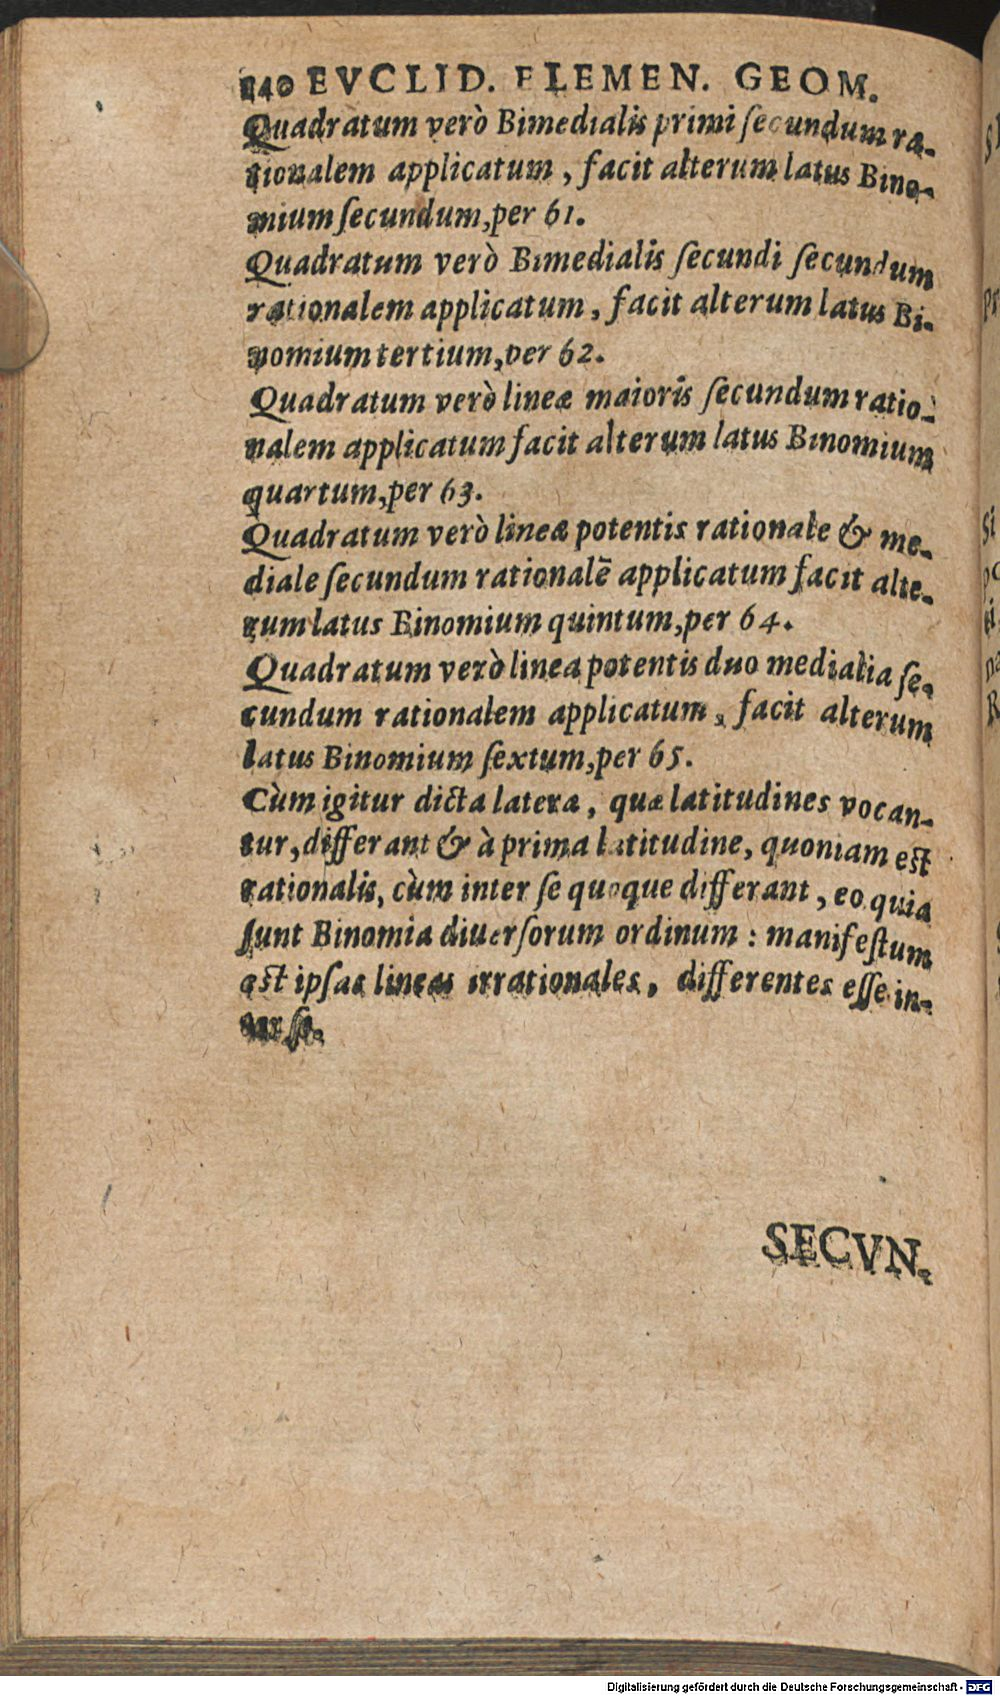 140 EVCLID. ELEMEN. GEOM.
Quadratum verò Bimedialis primi ſecundum ra-
tionalem applicatum, facit alterum latus Bino-
mium ſecundum, per 61.
Quadratum verò Bimedialis ſecundi ſecundum
rationalem applicatum, facit alterum latus Bi-
nomium tertium, per 62.
Quadratum verò lineæ maioris ſecundum ratio-
nalem applicatum facit alterum latus Binomium
quartum, per 63.
Quadratum verò lineæ potentis rationale & me-
diale ſecundum rationalẽ applicatum facit alte-
rum latus Binomium quintum, per 64.
Quadratum verò linea potentis duo medialia ſe-
cundum rationalem applicatum, facit alterum
latus Binomium ſextum, per 65.
Cùm igitur dicta latera, quæ latitudines vocan-
tur, differant & à prima latitudine, quoniam eſt
rationalis, cùm inter ſe quoque differant, eo quia
ſunt Binomia diuerſorum ordinum : manifeſtum
eſt ipſas lineas irrationales, differentes eſſe in-
ter ſe.
SECVN-
Digitalisierung gefördert durch die Deutsche Forschungsgemeinschaft - DFG